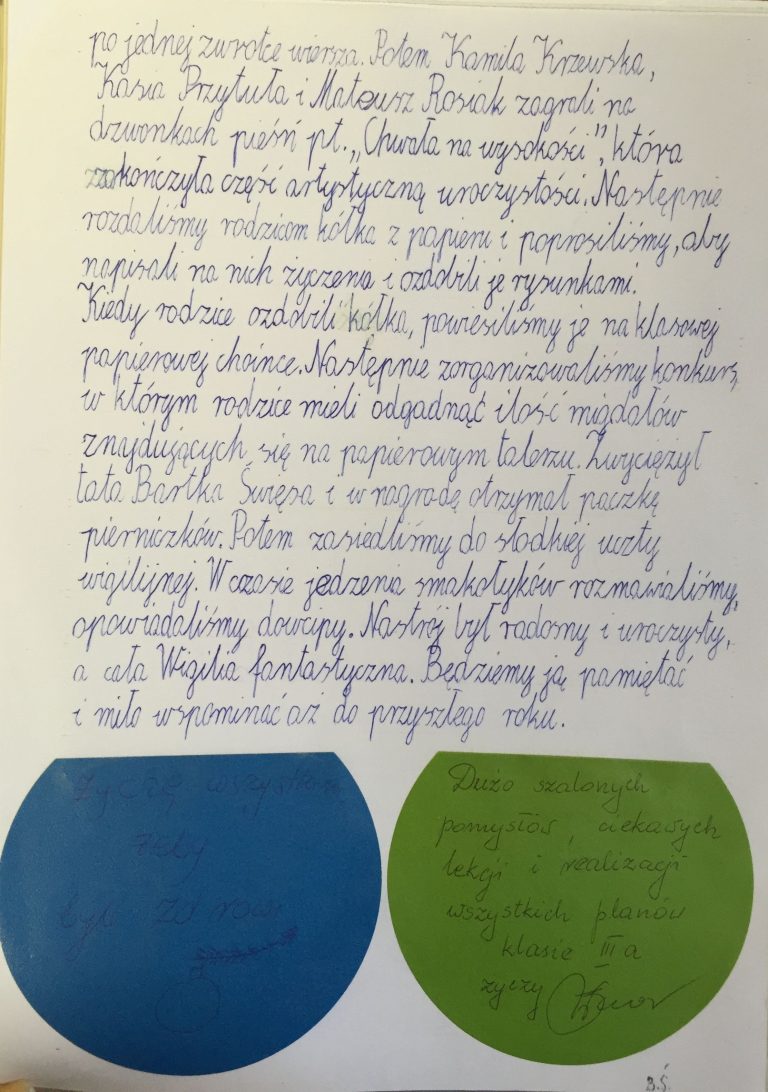 po jednej zwrotce wiersza. Potem Kamila Krzewska,
Kasia Przytuła i Mateusz Rosiak zagrali na
dzwonkach pieśń pt. „Chwała na wysokości”, która
zakończyła część artystyczną uroczystości. Następnie
rozdaliśmy rodzicom kółka z papieru i poprosiliśmy, aby
napisali na nich życzenia i ozdobili je rysunkami.
Kiedy rodzice ozdobili kółka, powiesiliśmy je na klasowej
papierowej choince. Następnie zorganizowaliśmy konkurs,
w którym rodzice mieli odgadnąć ilość migdałów
znajdujących się na papierowym talerzu. Zwyciężył
tata Bartka Święsa i w nagrodę otrzymał paczkę
pierniczków. Potem zasiedliśmy do słodkiej uczty
wigilijnej. W czasie jedzenia smakołyków rozmawialiśmy,
opowiadaliśmy dowcipy. Nastrój był radosny i uroczysty,
a cała Wigilia fantastyczna. Będziemy ją pamiętać
i miło wspominać aż do przyszłego roku.
Życzę wszystkim
żeby
byli zdrowi
Dużo szalonych
pomysłów, ciekawych
lekcji i realizacji
wszystkich planów
klasie III a
życzy
B.Ś.